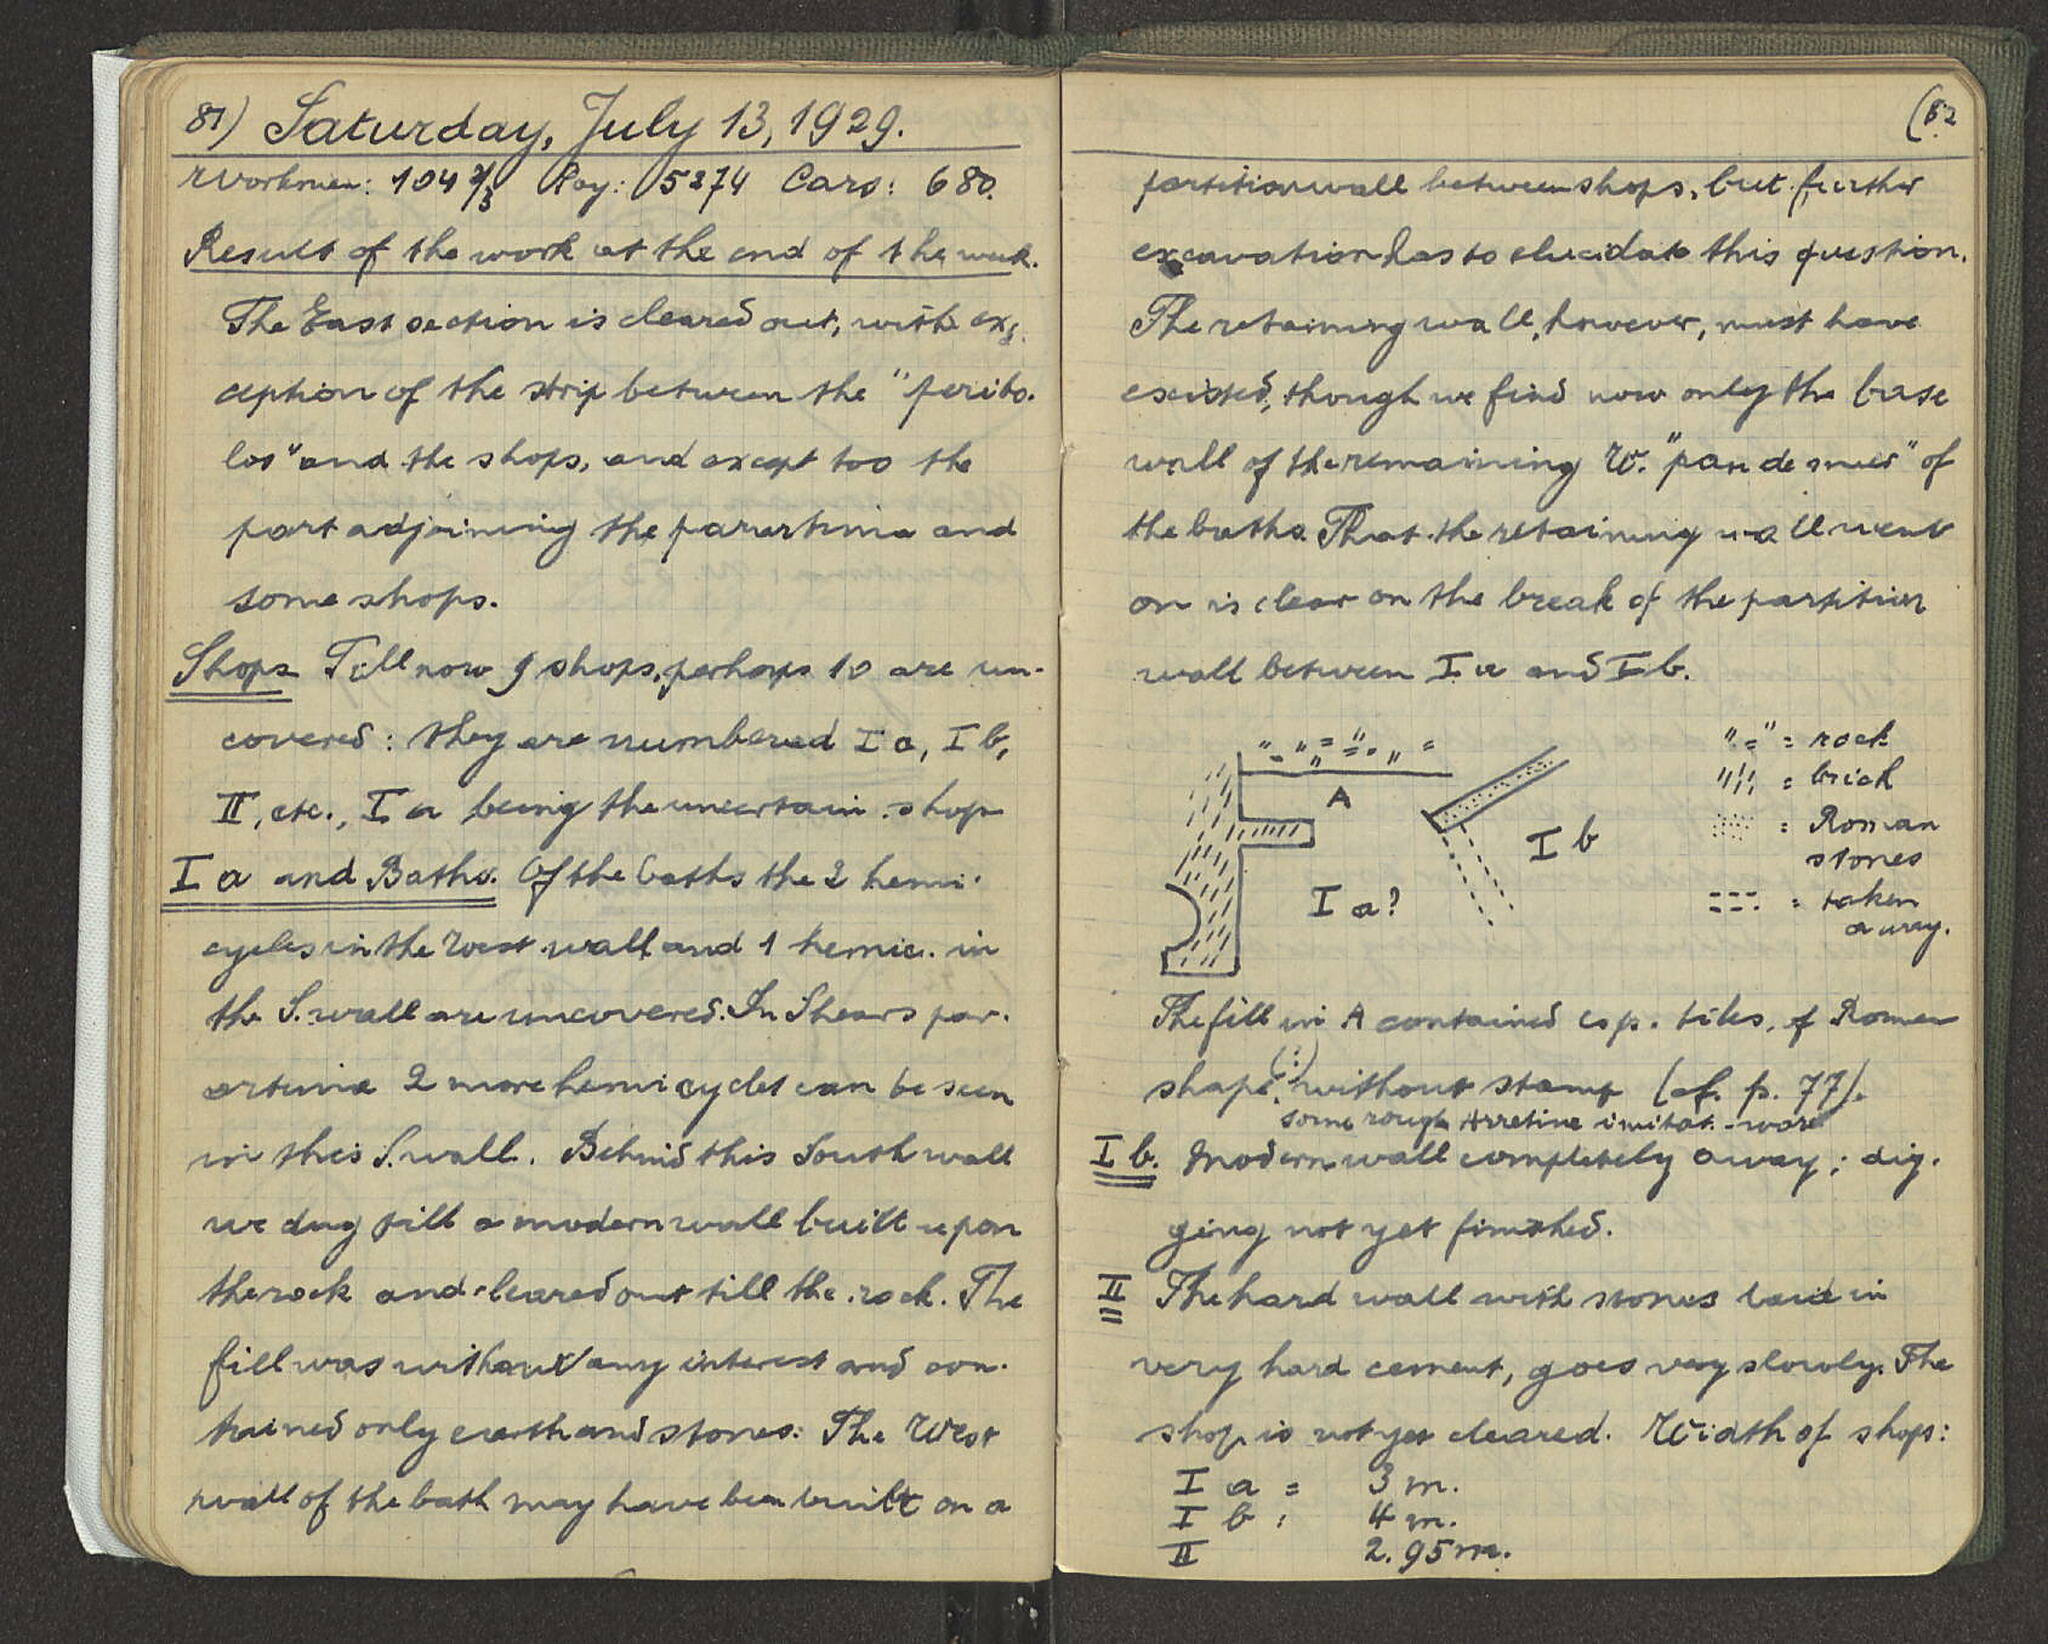 81) Saturday, July 13, 1929.
Workmen: 104 2/3 Pay: 5274 Cars: 680.
Result of the work at the end of the week.
The East section is cleared out, with ex-
ception of the strip between the "peribo-
los" and the shops, and except too the
part adjoining the parartima and
some shops.
Shops Till now 9 shops, perhaps 10 are un-
covered: they are numbered I a, I b,
II, etc., I a being the uncertain shop
I a and Baths. Of the baths the 2 hemi-
cycles in the West wall and 1 hemic. in
the S. wall are uncovered. In Shears par-
artima 2 more hemicycles can be seen
in this S. wall. Behind this South wall
we dug till a modern wall built upon
the rock and cleared out till the rock. The
fill was without any interest and con-
tained only earth and stones. The West
wall of the bath may have been built on a
(82
partition wall between shops, but further
excavation has to elucidate this question.
The retaining wall, however, must have
existed, though we find now only the base
wall of the remaining W. "pan de mur" of
the baths. That the retaining wall went
on is clear on the break of the partition
wall between I a and I b.
A
I b
I a?
= rock
= brick
= Roman
stones
= taken
away.
The fill in A contained esp. tiles, of Roman
shape (:) without stamp (cf. p. 77).
some rough Arretine imitat. ware
I b. Modern wall completely away; dig-
ging not yet finished.
II The hard wall with stones laid in
very hard cement, goes very slowly. The
shop is not yet cleared. Width of shops:
I a = 3 m.
I b : 4 m.
II 2.95 m.